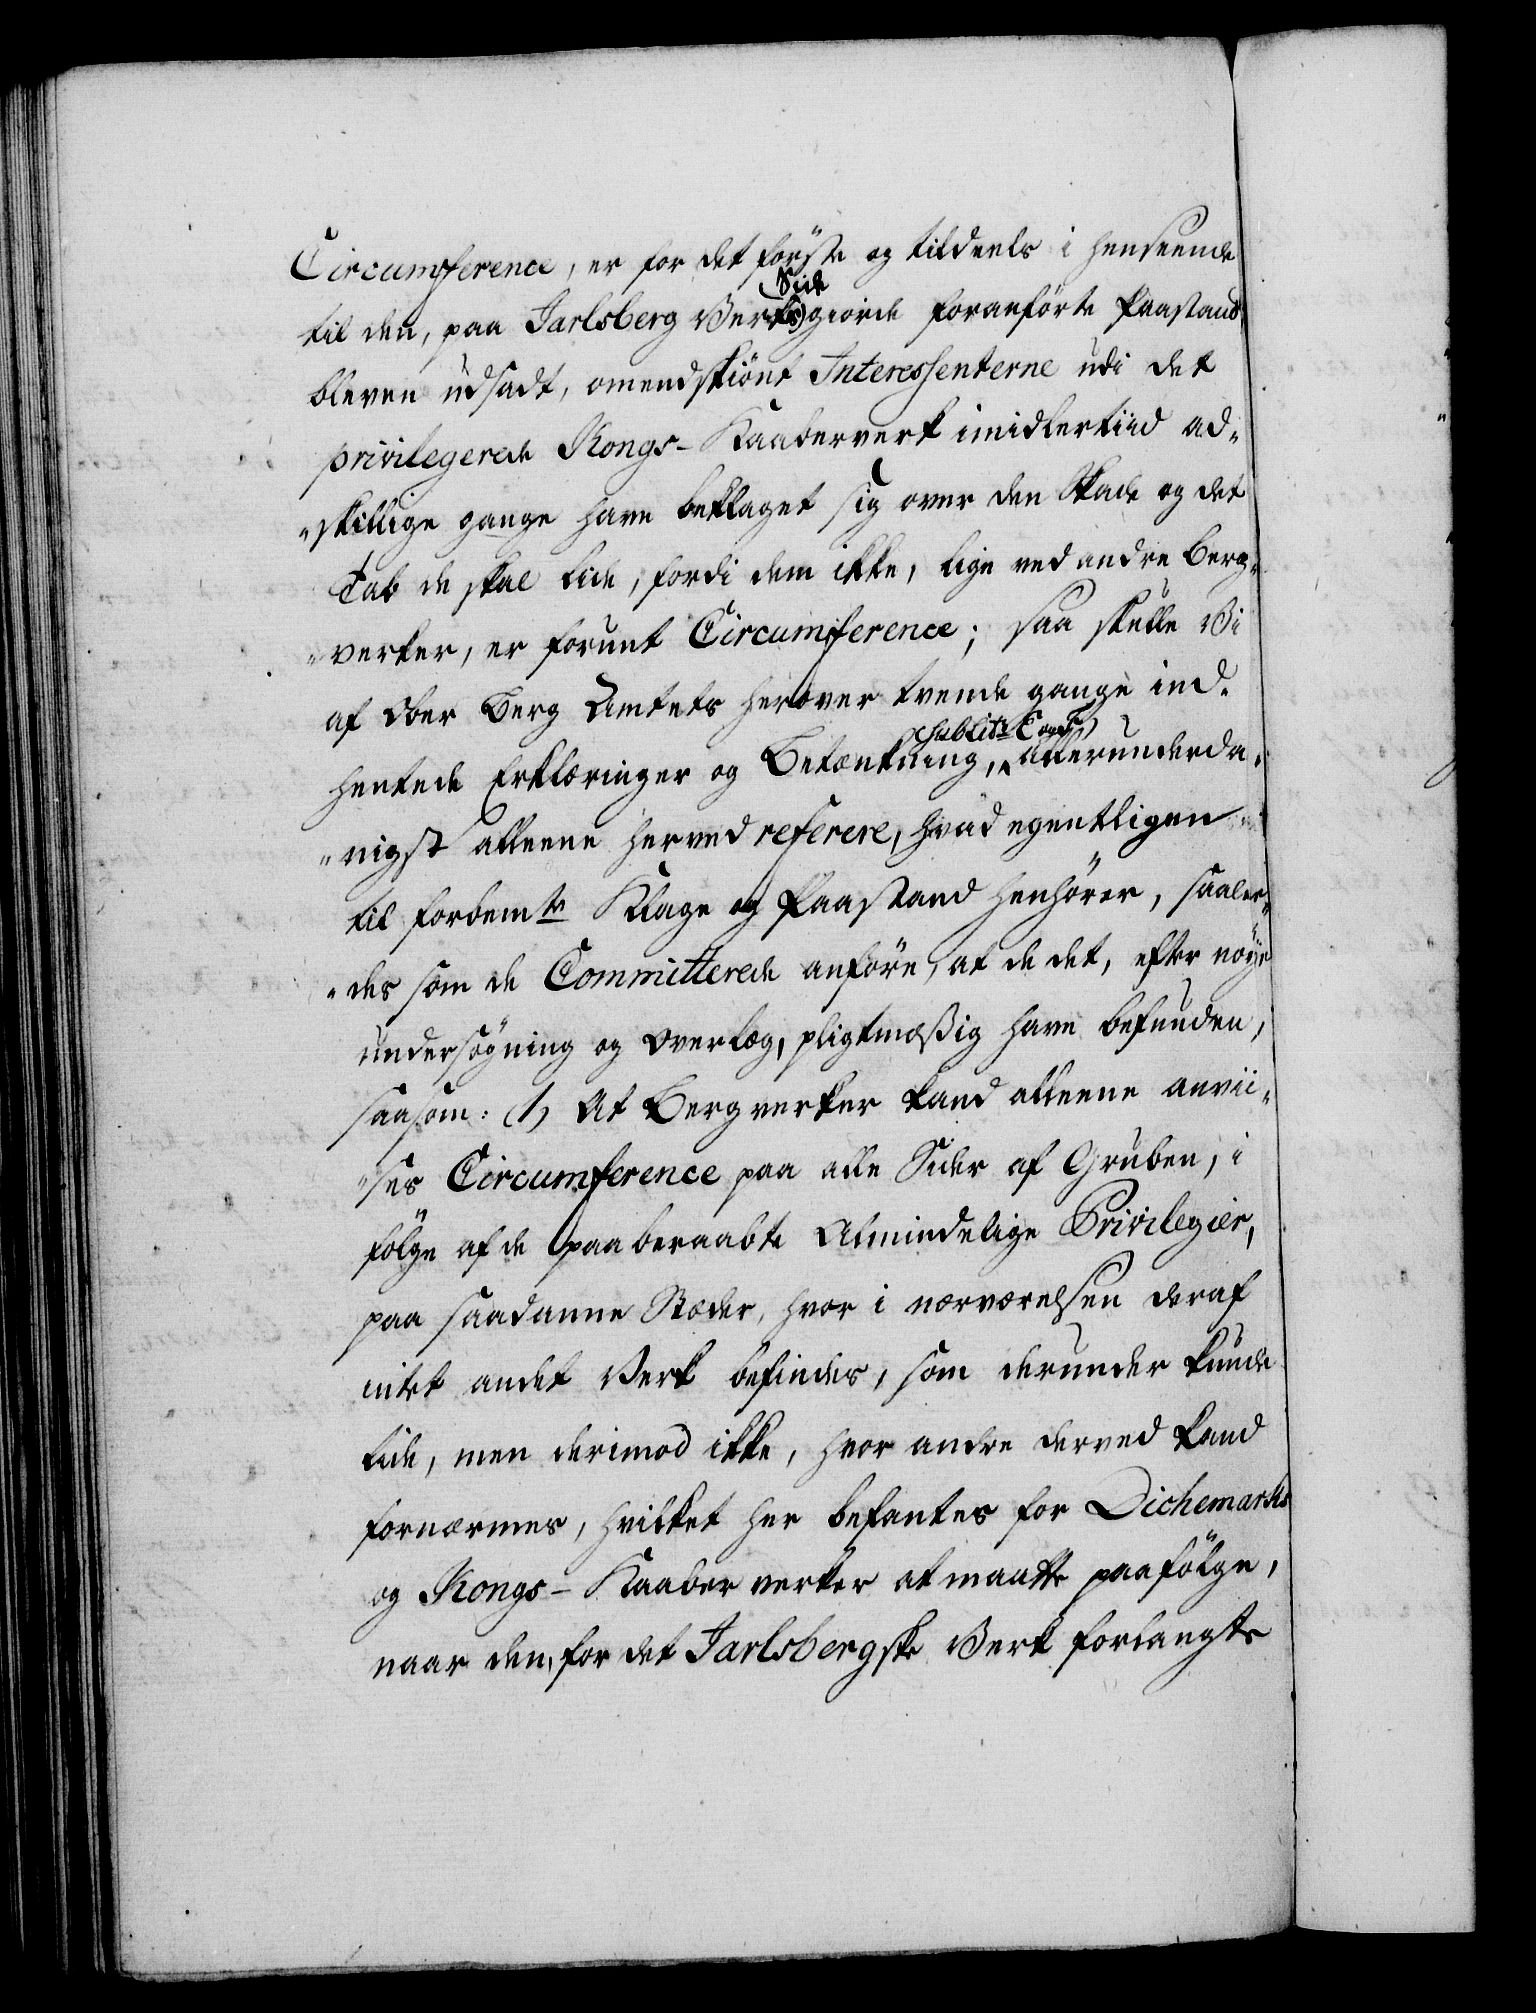 Circumference, er for det förste og tildeels i henseende
til den, paa Jarlsberg Verks Side giorde foranförte Paastand
bleven udsadt, omendskiönt Interessenterne udi det
privilegerede Kongs-Kaaberverk imidlertiid ad-
skillige gange have beklaget sig over den Skade og det
Tab de skal lide, fordi dem ikke, lige ved andre Berg-
verker, er forunt Circumference; saa skulle Vi
af Ober Berg Amtets herover tvende gange ind-
hentede Erklæringer og Betænkning, allerunderda-
nigst alleene herved referere, hvad egentligen
til forbemte Klage og Paastand henhörer, saale-
des som de Committerede anföre, at de det, efter nöye
undersögning og Overlæg, pligtmæssig have befunden,
saasom: (1) At Bergverker kand alleene anvii-
ses Circumference paa alle Sider af Gruben, i
fölge af de paaberaabte Almindelige Privilegier,
paa saadanne Stæder, hvor i nærværelsen deraf
intet andet Verk befindes, som derunder kunde
lide, men derimod ikke, hvor andre derved kand
fornærmes, hvilket her befantes for Dichemarks
og Kongs-Kaaber verker at maatte paafölge,
naar den, for det Jarlsbergske Verk forlangte